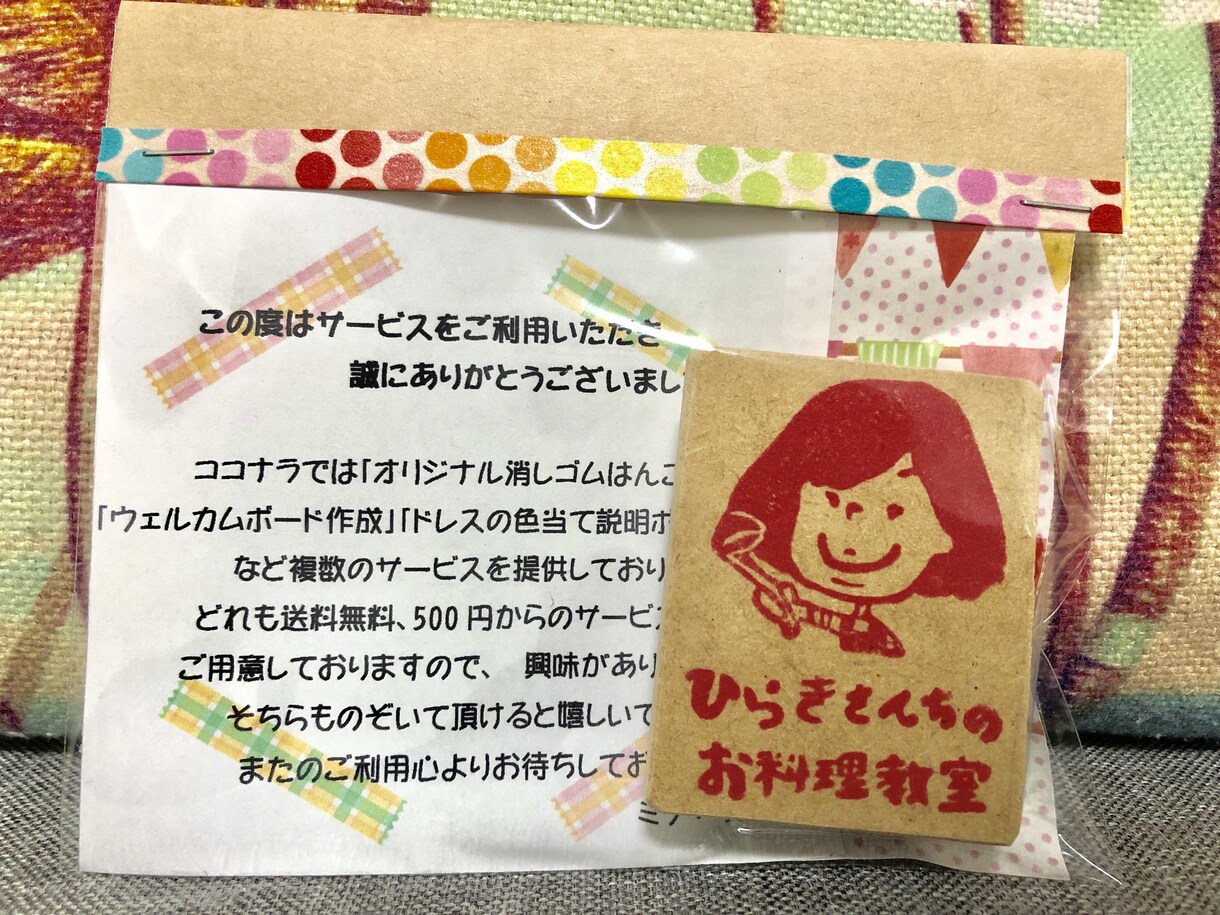 この度はサービスをご利用いただき
誠にありがとうございまし
ココナラでは「オリジナル消しゴムはんこ
「ウェルカムボード作成」「ドレスの色当て説明ボ
など複数のサービスを提供しており
どれも送料無料、500円からのサービス
ご用意しておりますので、 興味があり
そちらものぞいて頂けると嬉しいで
またのご利用心よりお待ちしてお
ひらきさんちの
お料理教室